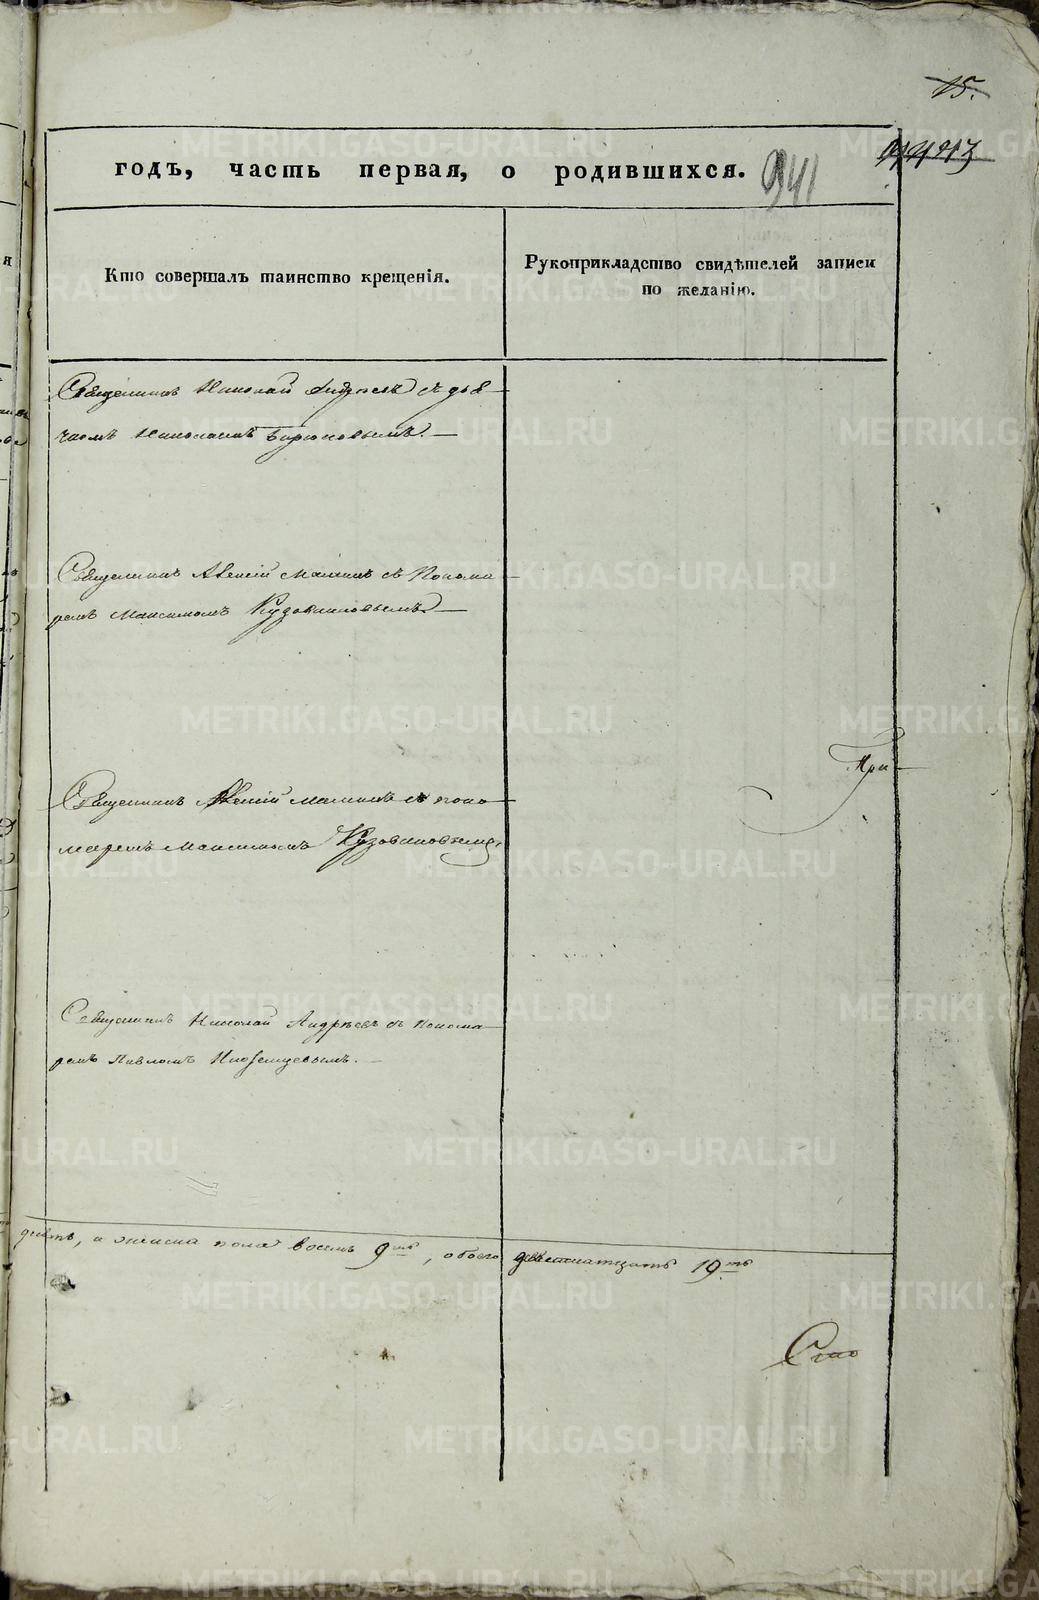 15.
годъ, часть первая, о родившихся. 941
Кто совершалъ таинство крещенія.
Рукоприкладство свидѣтелей записи
по желанію.
Священникъ Николай Андреевъ съ дья
чкомъ Николаемъ Бирюковымъ.
Священникъ Алексій Малининъ съ Понома
ремъ Максимомъ Кузовниковымъ
При
Священникъ Алексій Малининъ съ поно
маремъ Максимомъ Кузовниковымъ.
Священникъ Николай Андреевъ съ Понома
ремъ Павломъ Иноземцевымъ.
а женска пола восемь 9ть, обоего девятнатцать 19ть
Сто
METRIKI.GASO-URAL.RU